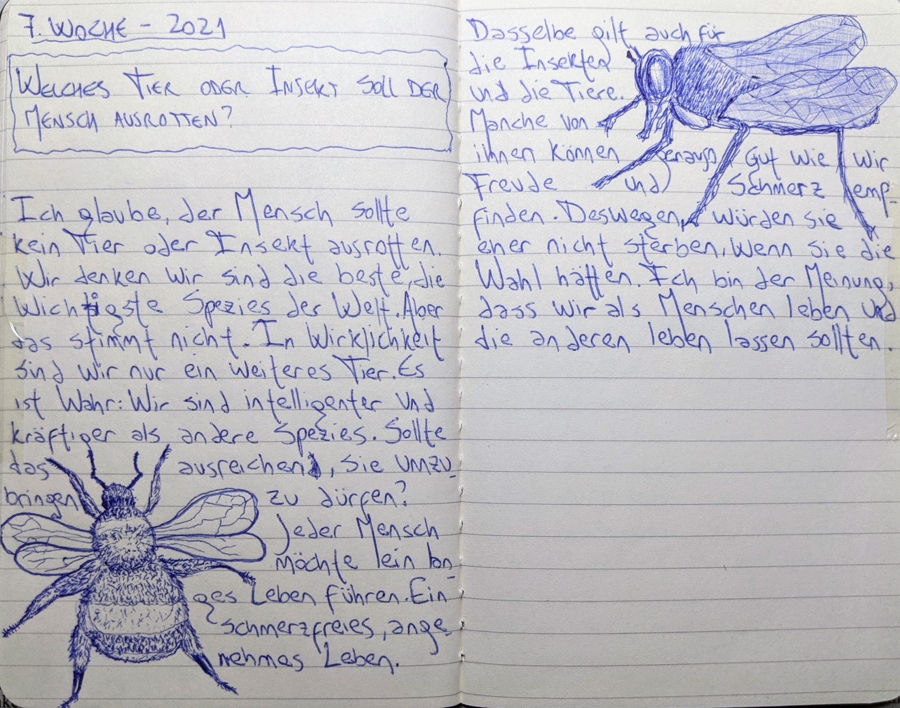 7. WOCHE - 2021
WELCHES TIER ODER INSEKT SOLL DER
MENSCH AUSROTTEN?
Ich glaube, der Mensch sollte
kein Tier oder Insekt ausrotten.
Wir denken wir sind die beste, die
wichtigste Spezies der Welt. Aber
das stimmt nicht. In Wirklichkeit
sind wir nur ein weiteres Tier. Es
ist wahr: Wir sind intelligenter und
kräftiger als andere Spezies. Sollte
das ausreichend, sie umzu-
bringen zu dürfen?
Jeder Mensch
möchte lein lan-
ges Leben führen. Ein
schmerzfreies, ange-
nehmes Leben.
Dasselbe gilt auch für
die Insekten
und die Tiere.
Manche von
ihnen können genauso gut wie wir
Freude und Schmerz emp-
finden. Deswegen, würden sie
eher nicht sterben, wenn sie die
Wahl hätten. Ich bin der Meinung,
dass wir als Menschen leben und
die anderen leben lassen sollten.